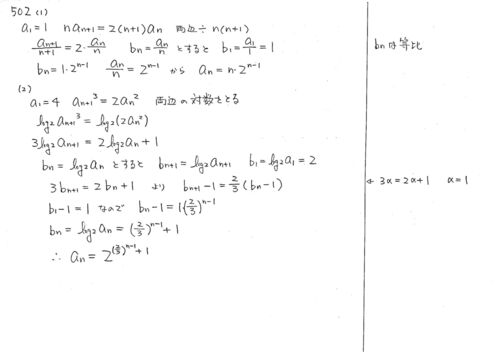 502 (1)
a₁=1　n aₙ₊₁=2(n+1)aₙ　両辺÷n(n+1)
aₙ₊₁/(n+1)=2・aₙ/n　bₙ=aₙ/n とすると b₁=a₁/1=1
bₙは等比
bₙ=1・2ⁿ⁻¹　aₙ/n=2ⁿ⁻¹ から aₙ=n・2ⁿ⁻¹
(2)
a₁=4　aₙ₊₁³=2aₙ²　両辺の対数をとる
log₂aₙ₊₁³=log₂(2aₙ²)
3log₂aₙ₊₁=2log₂aₙ+1
bₙ=log₂aₙ とすると bₙ₊₁=log₂aₙ₊₁　b₁=log₂a₁=2
3bₙ₊₁=2bₙ+1 より bₙ₊₁-1=2/3(bₙ-1)
← 3α=2α+1　α=1
b₁-1=1 なので bₙ-1=1(2/3)ⁿ⁻¹
bₙ=log₂aₙ=(2/3)ⁿ⁻¹+1
∴ aₙ=2^((2/3)ⁿ⁻¹+1)